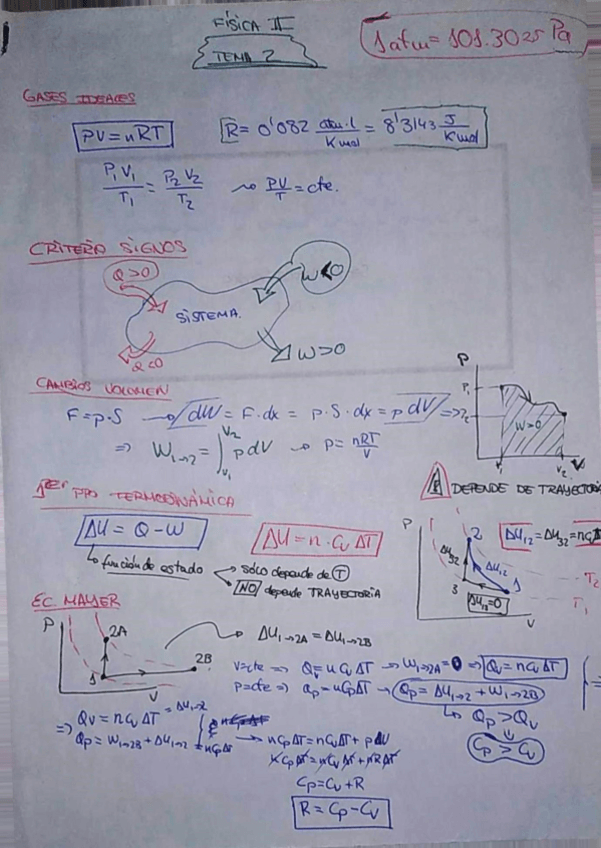 FÍSICA II
TEMA 2
1 atm = 101.3025 Pa
GASES IDEALES
PV = nRT
R = 0'082 atm·l / K mol = 8'3143 J / K mol
P₁V₁ / T₁ = P₂V₂ / T₂ ⇝ PV / T = cte.
CRITERIO SIGNOS
Q > 0
W < 0
SISTEMA.
Q < 0
W > 0
CAMBIOS VOLUMEN
F = p·S → dW = F·dx = p·S·dx = p dV =>
=> W₁→₂ = ∫ V₁ V₂ p dV → p = nRT / V
P
P₁
P₂
W > 0
V₁
V₂
V
DEPENDE DE TRAYECTORIA
1er PPO TERMODINÁMICA
ΔU = Q - W
ΔU = n·Cv ΔT
función de estado
→ sólo depende de T
→ NO depende TRAYECTORIA
P
2
ΔU₁₂ = ΔU₃₂ = nCv
ΔU₃₂
ΔU₁₂
3
1
ΔU₁₃ = 0
T₂
T₁
V
EC. MAYER
P
2A
1
2B
V
ΔU₁→₂A = ΔU₁→₂B
V = cte => Qv = n Cv ΔT → W₁→₂A = 0 => Qv = n Cv ΔT
P = cte => Qp = n Cp ΔT → Qp = ΔU₁→₂ + W₁→₂B
↳ Qp > Qv
⇓
Cp > Cv
=> Qv = n Cv ΔT = ΔU₁→₂
Qp = W₁→₂B + ΔU₁→₂ = nCpΔT
→ nCpΔT = nCvΔT + p dV
nCpΔT = nCvΔT + nRΔT
Cp = Cv + R
R = Cp - Cv